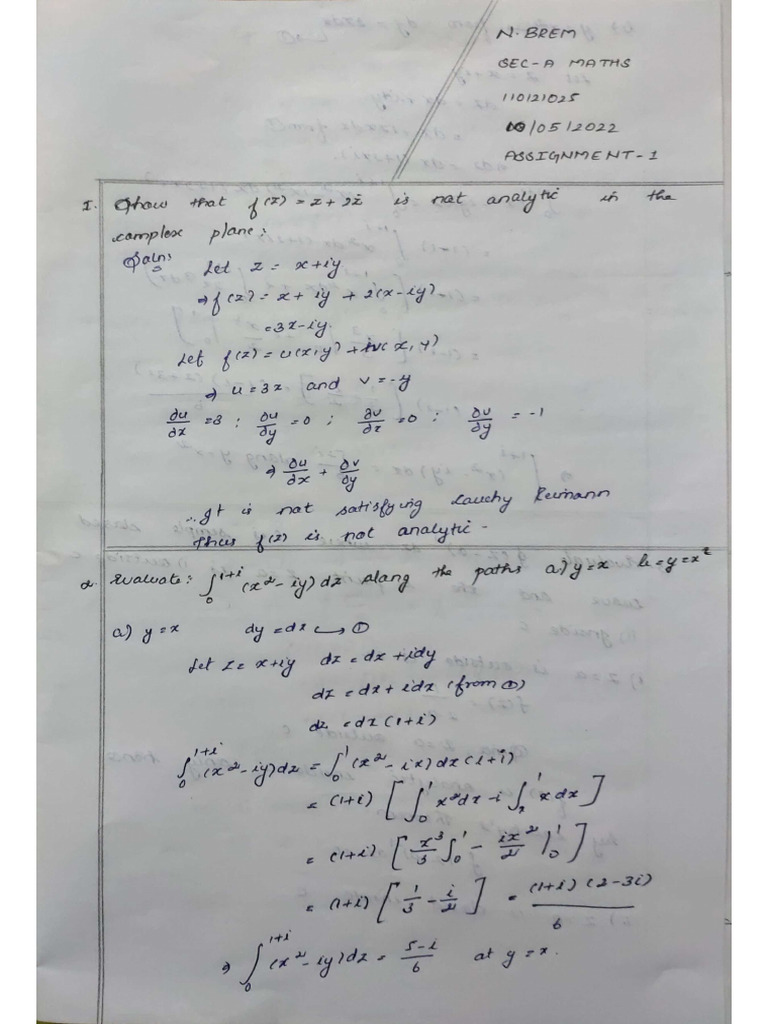 N. BREM
SEC-A MATHS
110121025
10/05/2022
ASSIGNMENT-1
1. Show that f(z) = z + 2z̄ is not analytic in the
complex plane:
Soln:
Let z = x+iy
⇒ f(z) = x + iy + 2(x-iy)
= 3x-iy.
Let f(z) = u(x,y) + iv(x, y)
⇒ u = 3x and v = -y
∂u/∂x = 3 ; ∂u/∂y = 0 ; ∂v/∂x = 0 ; ∂v/∂y = -1
⇒ ∂u/∂x + ∂v/∂y
∴ It is not satisfying Cauchy Reimann
Thus f(z) is not analytic -
2. Evaluate: ∫₀^{1+i} (x² - iy) dz along the paths a) y = x b = y = x²
a) y = x dy = dx ↪ ①
Let z = x+iy dz = dx + idy
dz = dx + idx (from ①)
dz = dx (1+i)
∫₀^{1+i} (x² - iy) dz = ∫₀¹ (x² - ix) dx (1+i)
= (1+i) [∫₀¹ x² dx - i ∫ₓ¹ x dx]
= (1+i) [x³/3 ∫₀¹ - ix²/2 |₀¹]
= (1+i) [1/3 - i/2] = (1+i) (2-3i)/6
⇒ ∫₀^{1+i} (x² - iy) dz = 5-i/6 at y = x.